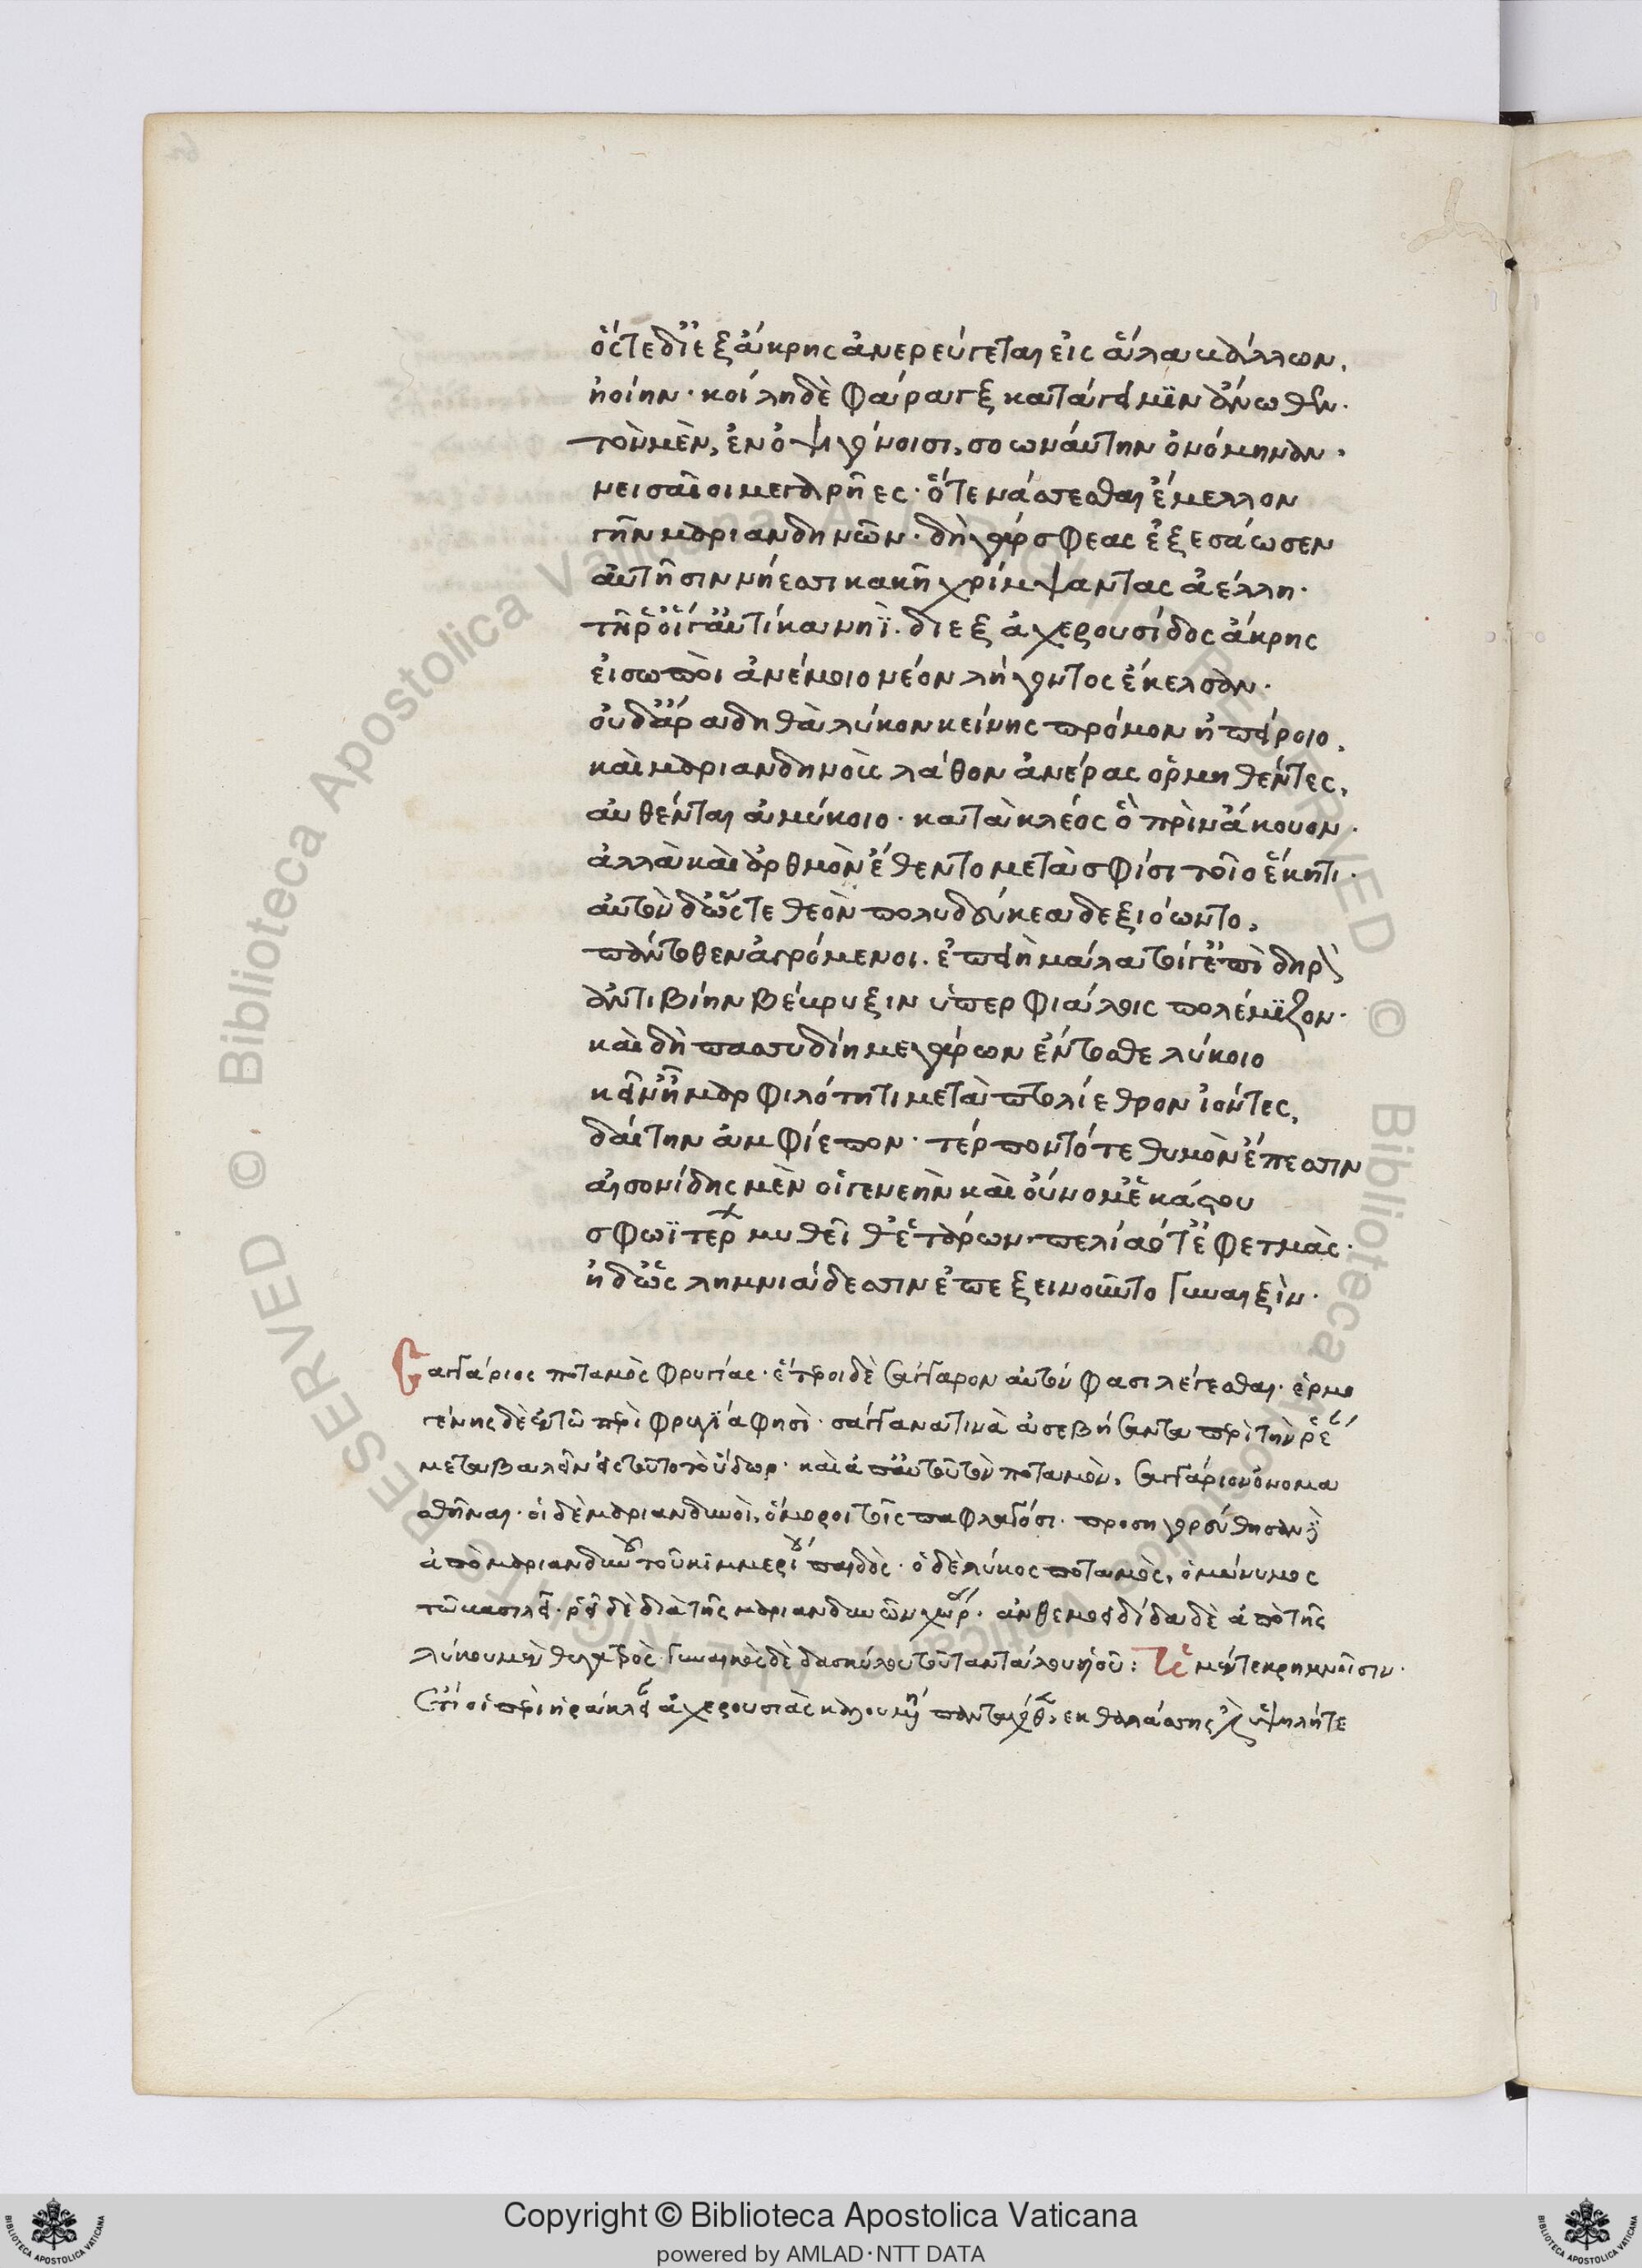 ὅς τε διὲξ ἄκρης ἀνερεύγεται εἰς ἅλα βάλλων,
ἠοίην· κοίλη δὲ φάραγξ κατάγει μϊν ἄνωθεν·
τὸν μὲν, ἐν ὀψιγόνοισι, σοωναύτην ὀνόμηναν·
νεισαῖοι μεγαρῆες· ὅτε νάσσεσθαι ἔμελλον
γῆν μαριανδηνῶν· δὴ γάρ σφεας ἐξεσάωσεν
αὐτῆσιν νήεσσι κακῆ χρίμψαντας ἀέλλη·
τῆ ῥ' οἵγ' αὐτίκα νηῒ. διὲξ ἀχερουσίδος ἄκρης
εἰσωποὶ ἀνέμοιο νέον λήγοντος ἔκελσαν·
οὐδ' ἄρα δηθὰ λύκον κείνης πρόμον ἠπείροιο,
καὶ μαριανδηνοὺς λάθον ἀνέρας ὁρμηθέντες,
αὐθένται ἀμύκοιο· κατὰ κλέος ὃ πρὶν ἄκουον·
ἀλλὰ καὶ ἀρθμὸν ἔθεντο μετὰ σφίσι τοῖο ἕκητι·
αὐτὸν δ' ὥς τε θεὸν πολυδεύκεα δεξιόωντο,
πάντοθεν ἀγρόμενοι. ἐπειὴ μάλα τοίγ' ἐπὶ δηρὸν
ἀντιβίην βέβρυξιν ὑπερφιάλοις πολέμϊζον·
καὶ δὴ πασσυδίη μεγάρων ἔντοσθε λύκοιο
κεῖν' ἦμαρ φιλότητι μετὰ πτολίεθρον ἰόντες,
δαίτην ἀμφίεπον· τέρποντό τε θυμὸν ἔπεσσιν
αἰσονίδης μὲν οἱ γενεὴν καὶ οὔνομ' ἑκάστου
σφωϊτέρων μυθεῖθ' ἑτάρων· πελίαό τ' ἐφετμὰς·
ἠδ' ὡς λημνιάδεσσιν ἐπεξεινοῦντο γυναιξὶν·
Σαγγάριος ποταμὸς φρυγίας· ἕτεροι δὲ σάγγαρον αὐτόν φασι λέγεσθαι· ἑρμο
γένης δὲ ἐν τῶ περὶ φρυγίας φησὶ· σάγγαν τινὰ ἀσεβήσαντα περὶ τὴν ῥέαν
μεταβαλεῖν εἰς τοῦτο τὸ ὕδωρ· καὶ ἀπ' αὐτοῦ τὸν ποταμὸν, σαγγάριον ὀνομα
σθῆναι· οἱ δὲ μαριανδυνοὶ, ὅμοροι τοῖς παφλαγόσι· προσηγορεύθησαν δὲ
ἀπὸ μαριανδυνοῦ τοῦ κιμμερίου παιδὸς· ὁ δὲ λύκος ποταμὸς, ὁμώνυμος
τῶ βασιλεῖ· ῥεῖ δὲ διὰ τῆς μαριανδυνῶν χώρας· ἀνθεμοεισίδα δὲ ἀπὸ τῆς
λύκου μὲν θυγατρὸς· γυναικὸς δὲ δασκύλου τοῦ ταντάλου υἱοῦ: Ἡ μέν τε κρημνοῖσιν·
Ὅτι οἱ περὶ ἡράκλειαν ἀχερουσιὰς καλουμένη πανταχόθεν, ἐκ θαλάσσης ὑψηλή τε